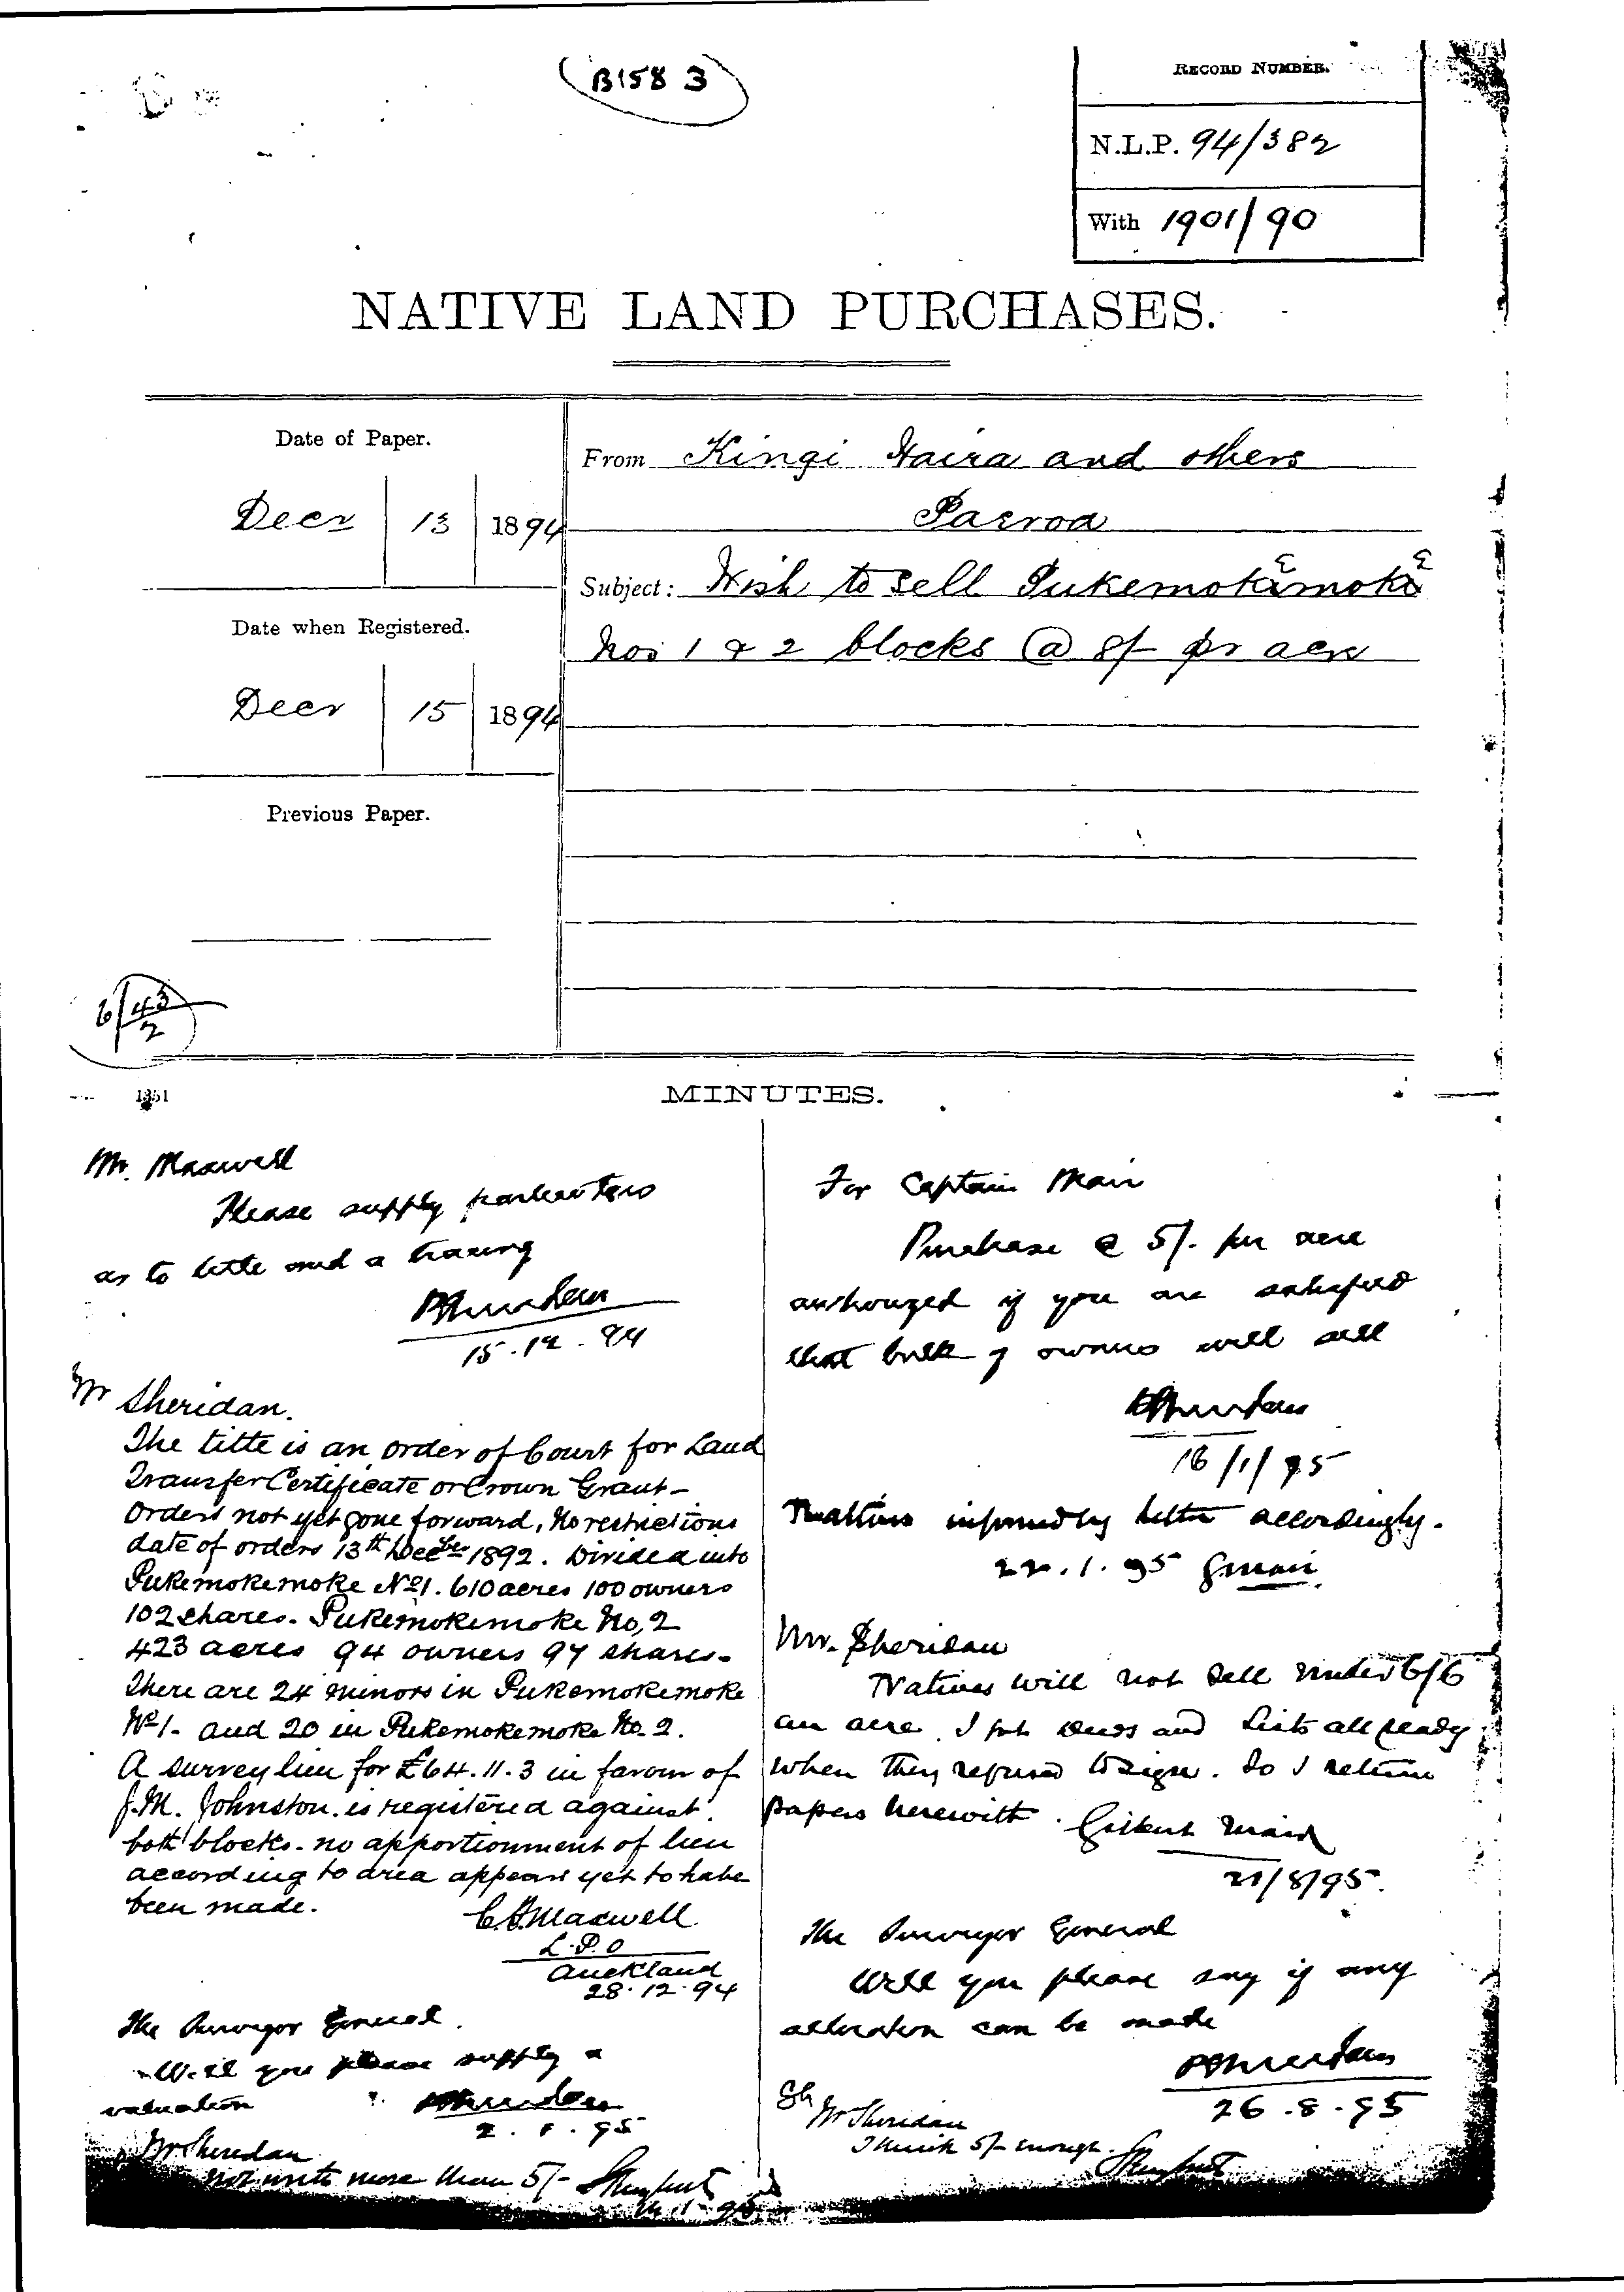 B158 3
RECORD NUMBER.
N.L.P. 94/382
With 1901/90
NATIVE LAND PURCHASES.
Date of Paper.
Decr 13 1894
Date when Registered.
Decr 15 1894
Previous Paper.
From Kingi Haira and others
Paeroa
Subject: Wish to sell Pukemokemoke
Nos 1 & 2 blocks @ 8/- pr acre
6/43
2
1351
MINUTES.
Mr. Maxwell
Please supply particulars
as to title and a tracing
PSheridan
15.12.94
Mr Sheridan.
The title is an order of Court for Land
Transfer Certificate or Crown Grant –
Orders not yet gone forward, No restrictions
date of orders 13th Decber 1892. Divided into
Pukemokemoke No 1. 610 acres 100 owners
102 shares. Pukemokemoke No, 2
423 acres 94 owners 97 shares.
There are 24 minors in Pukemokemoke
No 1. and 20 in Pukemokemoke No. 2.
A survey lien for £64.11.3 in favour of
J.M. Johnston. is registered against
both blocks. no apportionment of lien
according to area appears yet to have
been made.
Maxwell
L.P.O
Auckland
28.12.94
The Surveyor General.
Will you please supply a
valuation
PSheridan
2. 1. 95
Mr Sheridan
Not worth more than 5/-
1. 95
For Captain Mair
Purchase @ 5/. per acre
authorized if you are satisfied
that bulk of owners will sell
PSheridan
16/1/95
Natives informed by letter accordingly.
22.1.95 GMair
Mr. Sheridan
Natives will not sell under 6/6
an acre. I got deeds and lists all ready
when they refused to sign. So I return
papers herewith. Gilbert Mair
21/8/95.
The Surveyor General
Will you please say if any
alteration can be made
PSheridan
26.8.95
Mr Sheridan
I think 5/- enough.